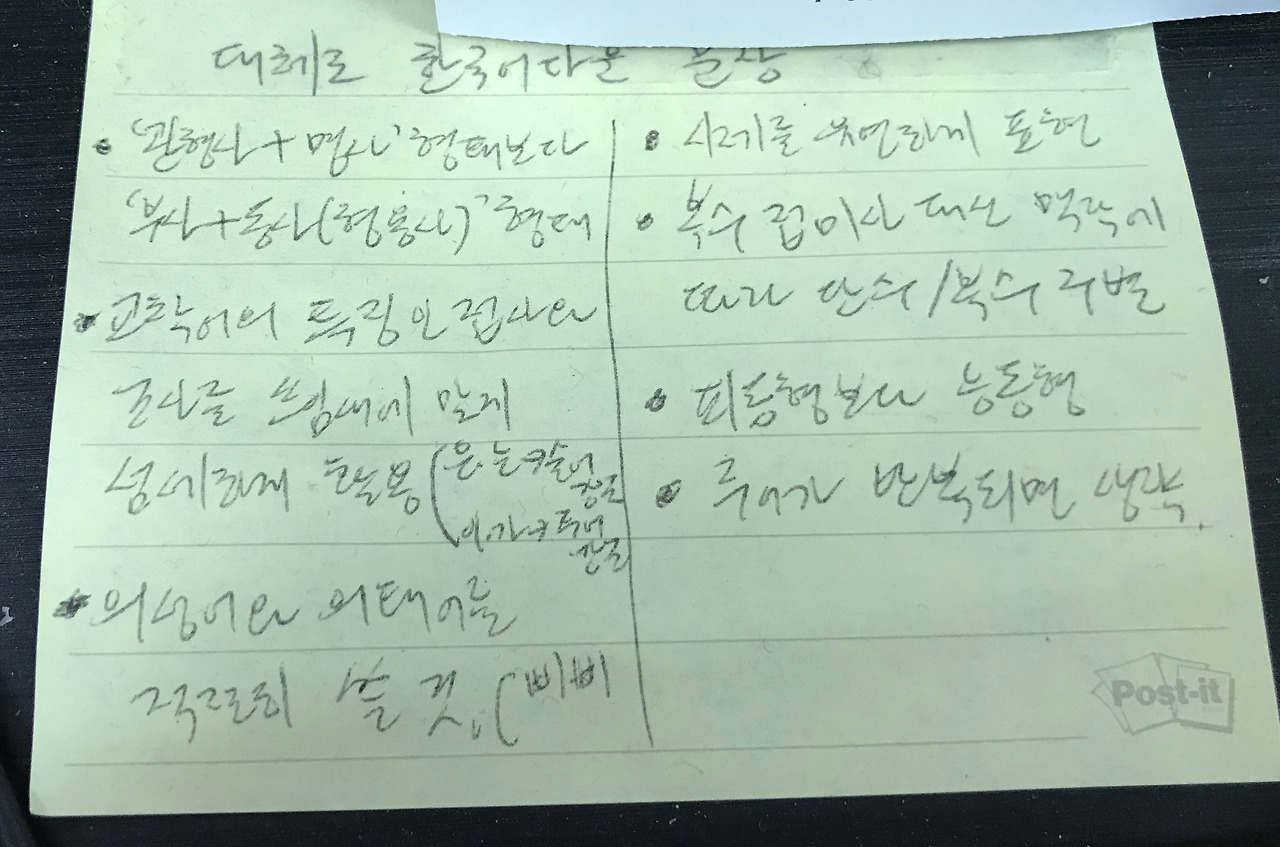 대체로 한국어다운 문장
• '관형사 + 명사' 형태보다
'부사 + 동사(형용사)' 형태
• 교착어의 특징인 접사와
조사를 쓰임새에 맞게
섬세하게 활용 (은.는→술어
강조
이.가→주어
강조
• 의성어와 의태어를
적극적으로 쓸 것. (삐삐
• 시제를 유연하게 표현
• 복수 접미사 대신 맥락에
따라 단수/복수 구별
• 피동형보다 능동형
• 주어가 반복되면 생략.
Post-it